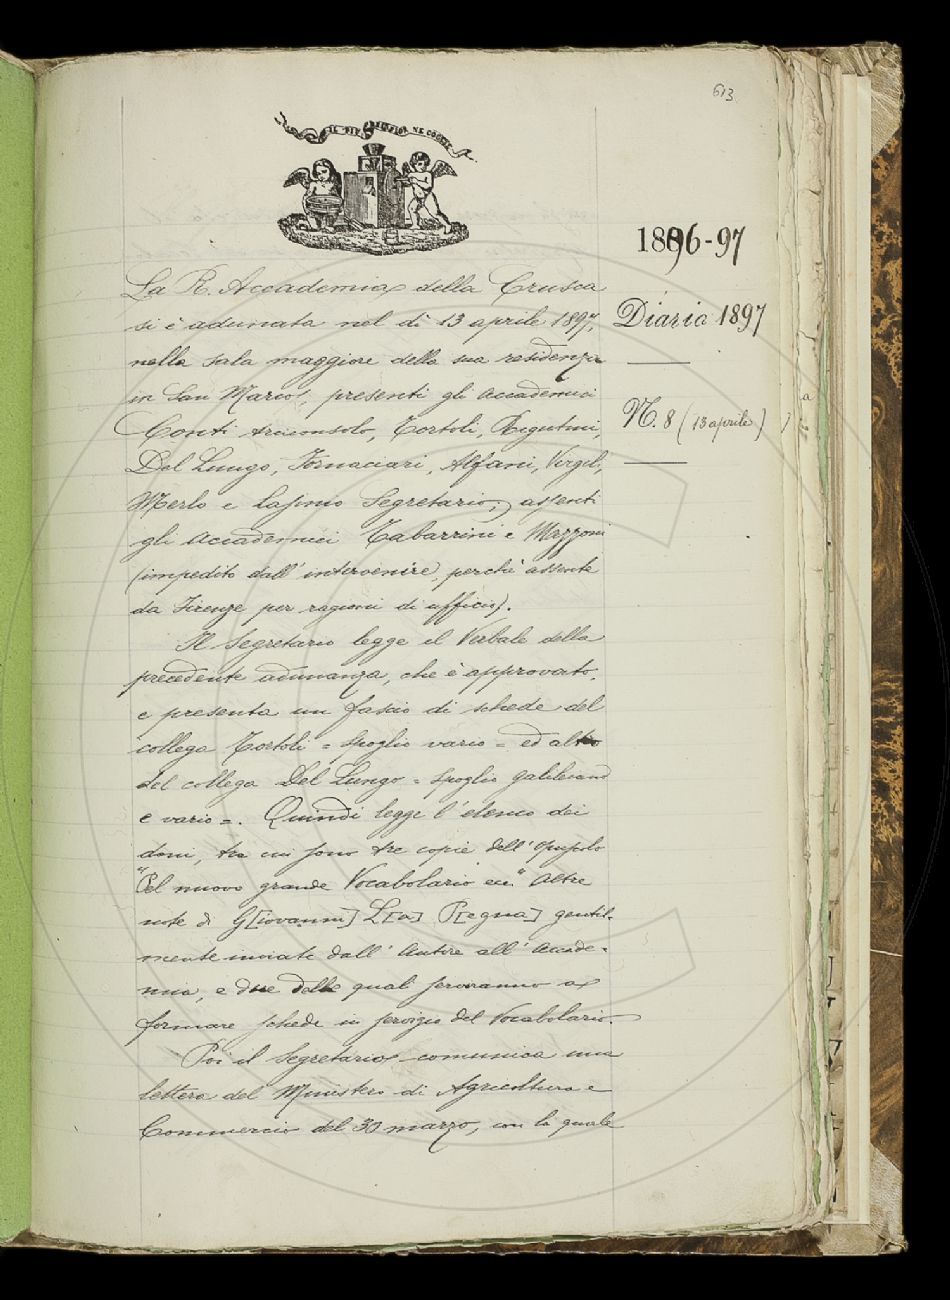 613
IL PIÙ BEL FIOR NE COGLIE
1896-97
Diario 1897
N. 8 (13 aprile)
La R. Accademia della Crusca
si è adunata nel dì 13 aprile 1897,
nella sala maggiore della sua residenza
in San Marco, presenti gli accademici
Conti Arciconsolo, Tortoli, Rigutini,
Del Lungo, Fornaciari, Alfani, Virgili,
Merlo e Lasinio Segretario, assenti
gli accademici Tabarrini e Mazzoni
(impedito dall' intervenire, perchè assente
da Firenze per ragioni di ufficio).
Il Segretario legge il Verbale della
precedente adunanza, che è approvato,
e presenta un fascio di schede del
collega Tortoli = spoglio vario = ed altro
del collega Del Lungo = spoglio galileiano
e vario =. Quindi legge l' elenco dei
doni, tra cui sono tre copie dell' opuscolo
"Pel nuovo grande Vocabolario ecc." Altre
note di G[iovanni] L[a] R[egna] gentil-
mente inviate dall' Autore all' Accade-
mia, e due delle quali serviranno a
formare schede in servigio del Vocabolario.
Poi il Segretario comunica una
lettera del Ministero di Agricoltura e
Commercio del 30 marzo, con la quale